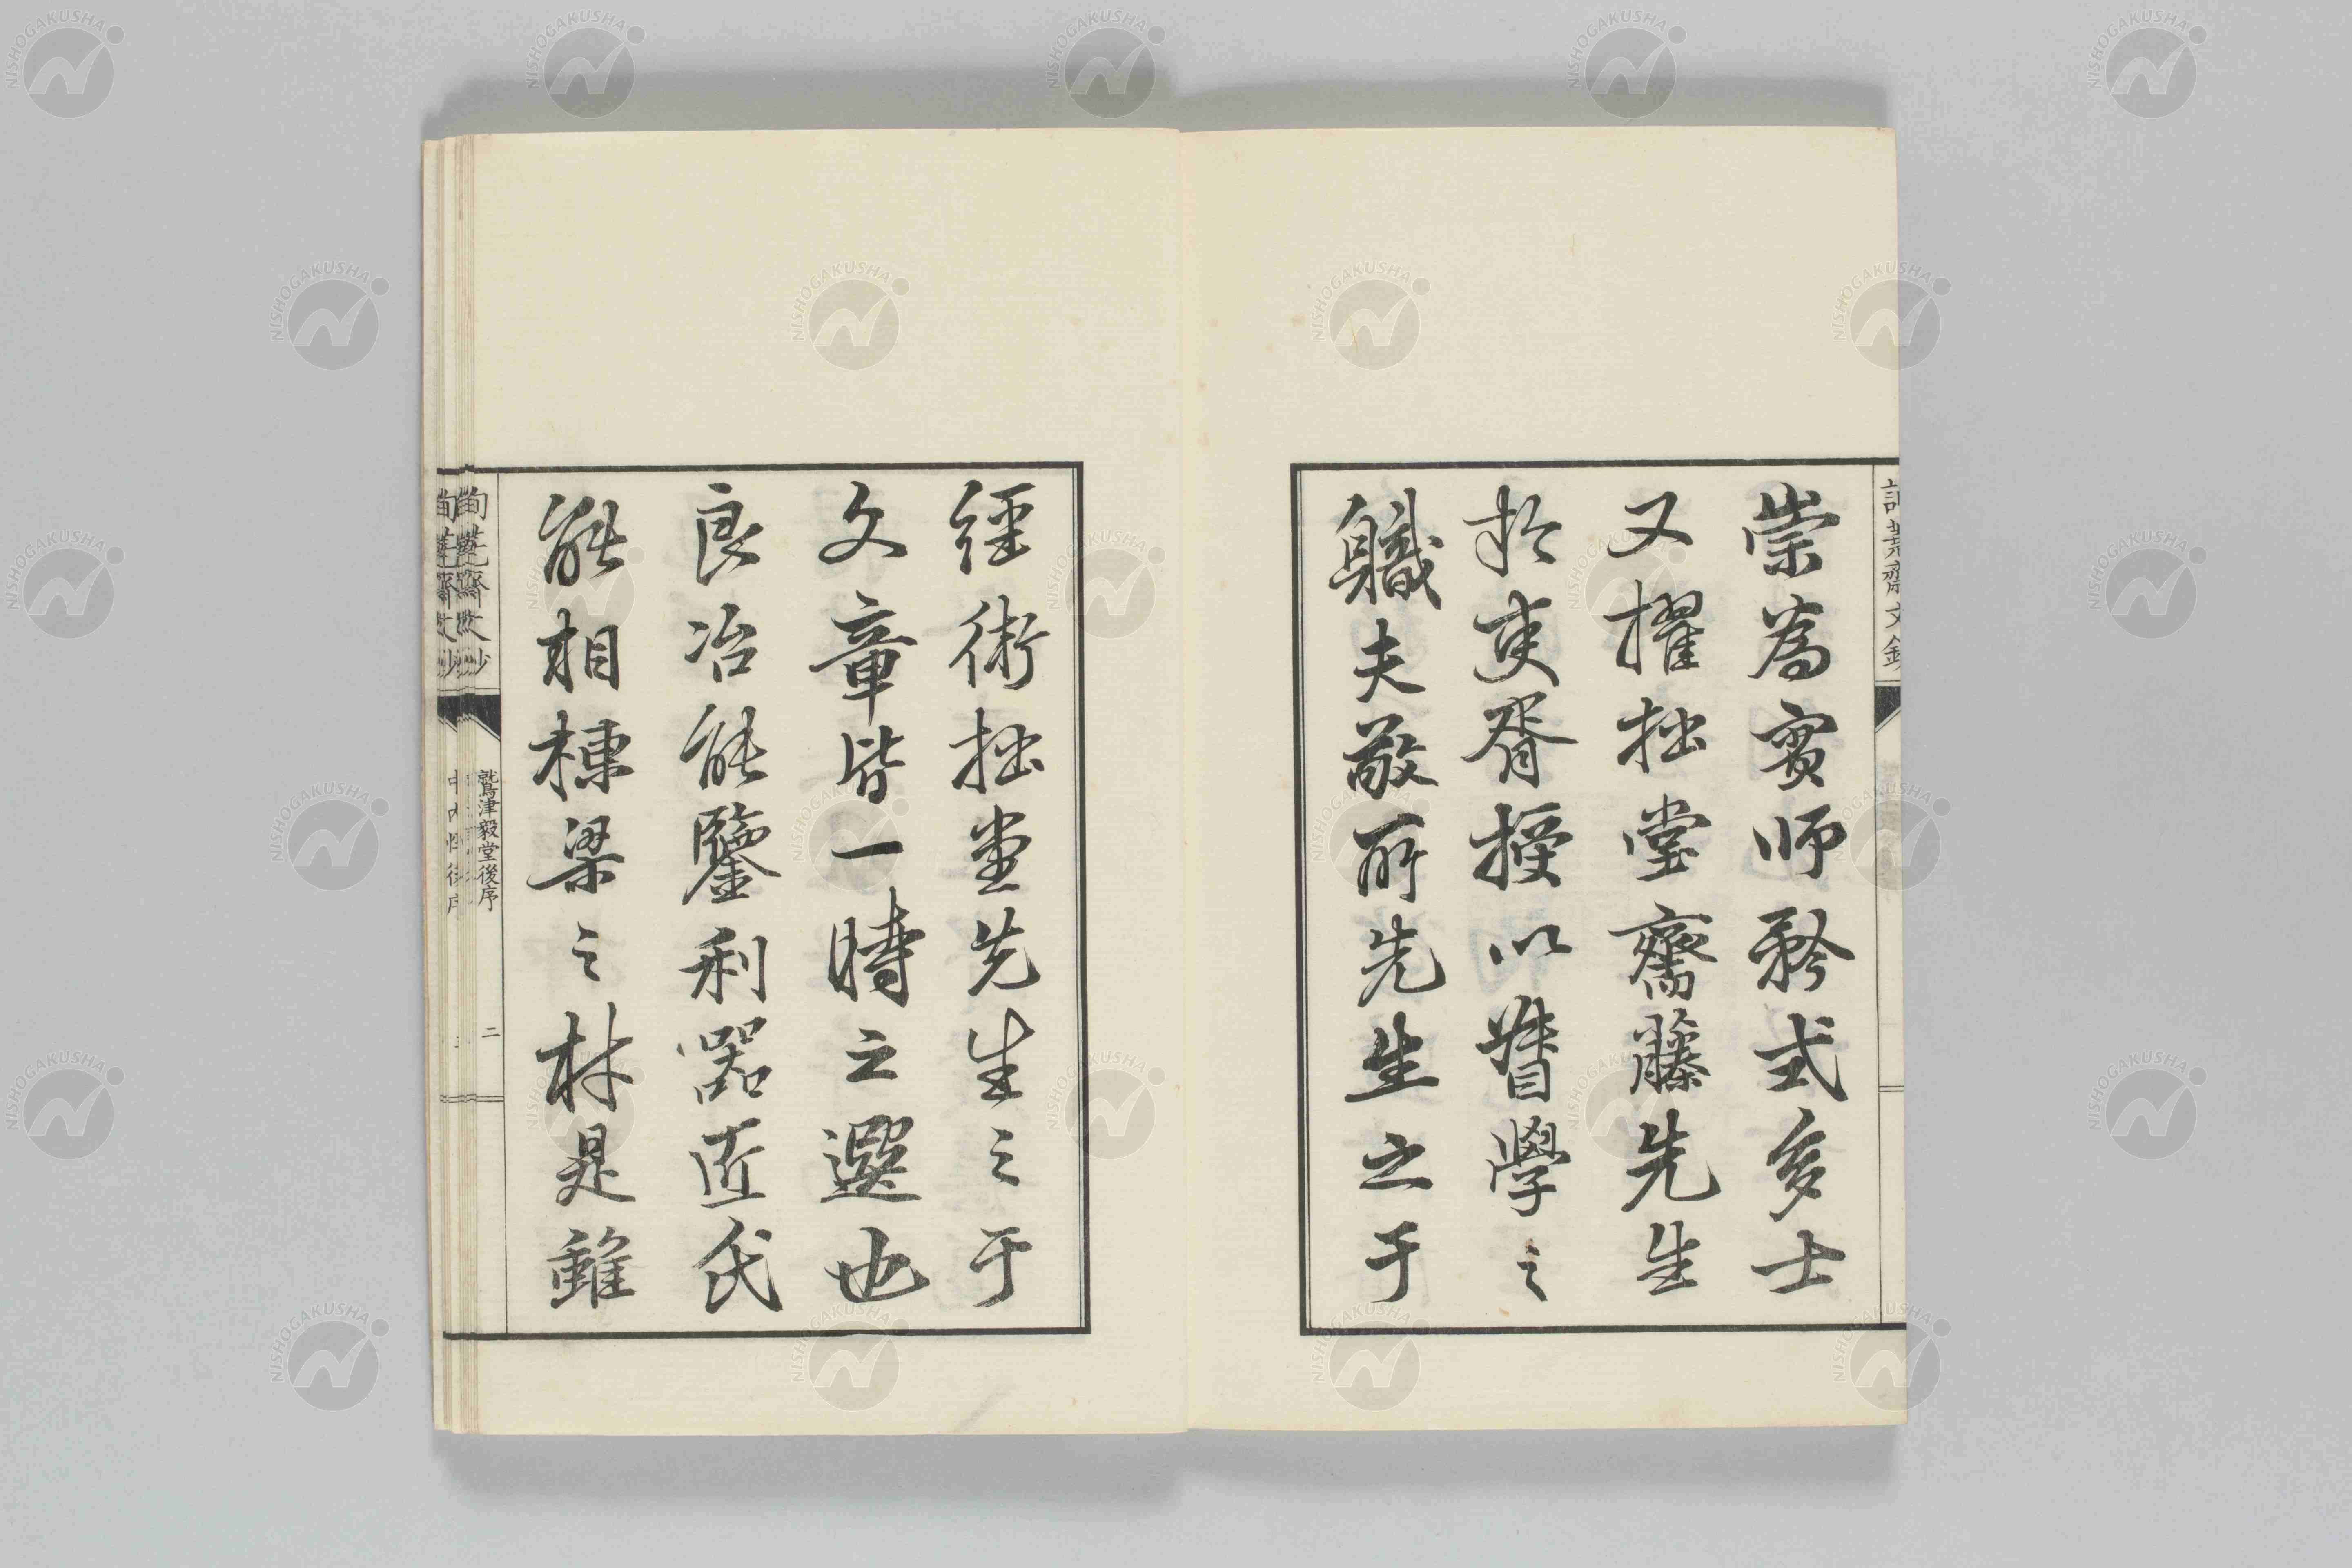 崇為賓師矜式多士
又擢拙堂齋藤先生
於吏胥授以督學之
職夫敬所先生之于
經術拙堂先生之于
文章皆一時之選也
良冶能鑒利器匠氏
能相棟梁之材是雖
鷲津毅堂後序
二
NISHOGAKUSHA